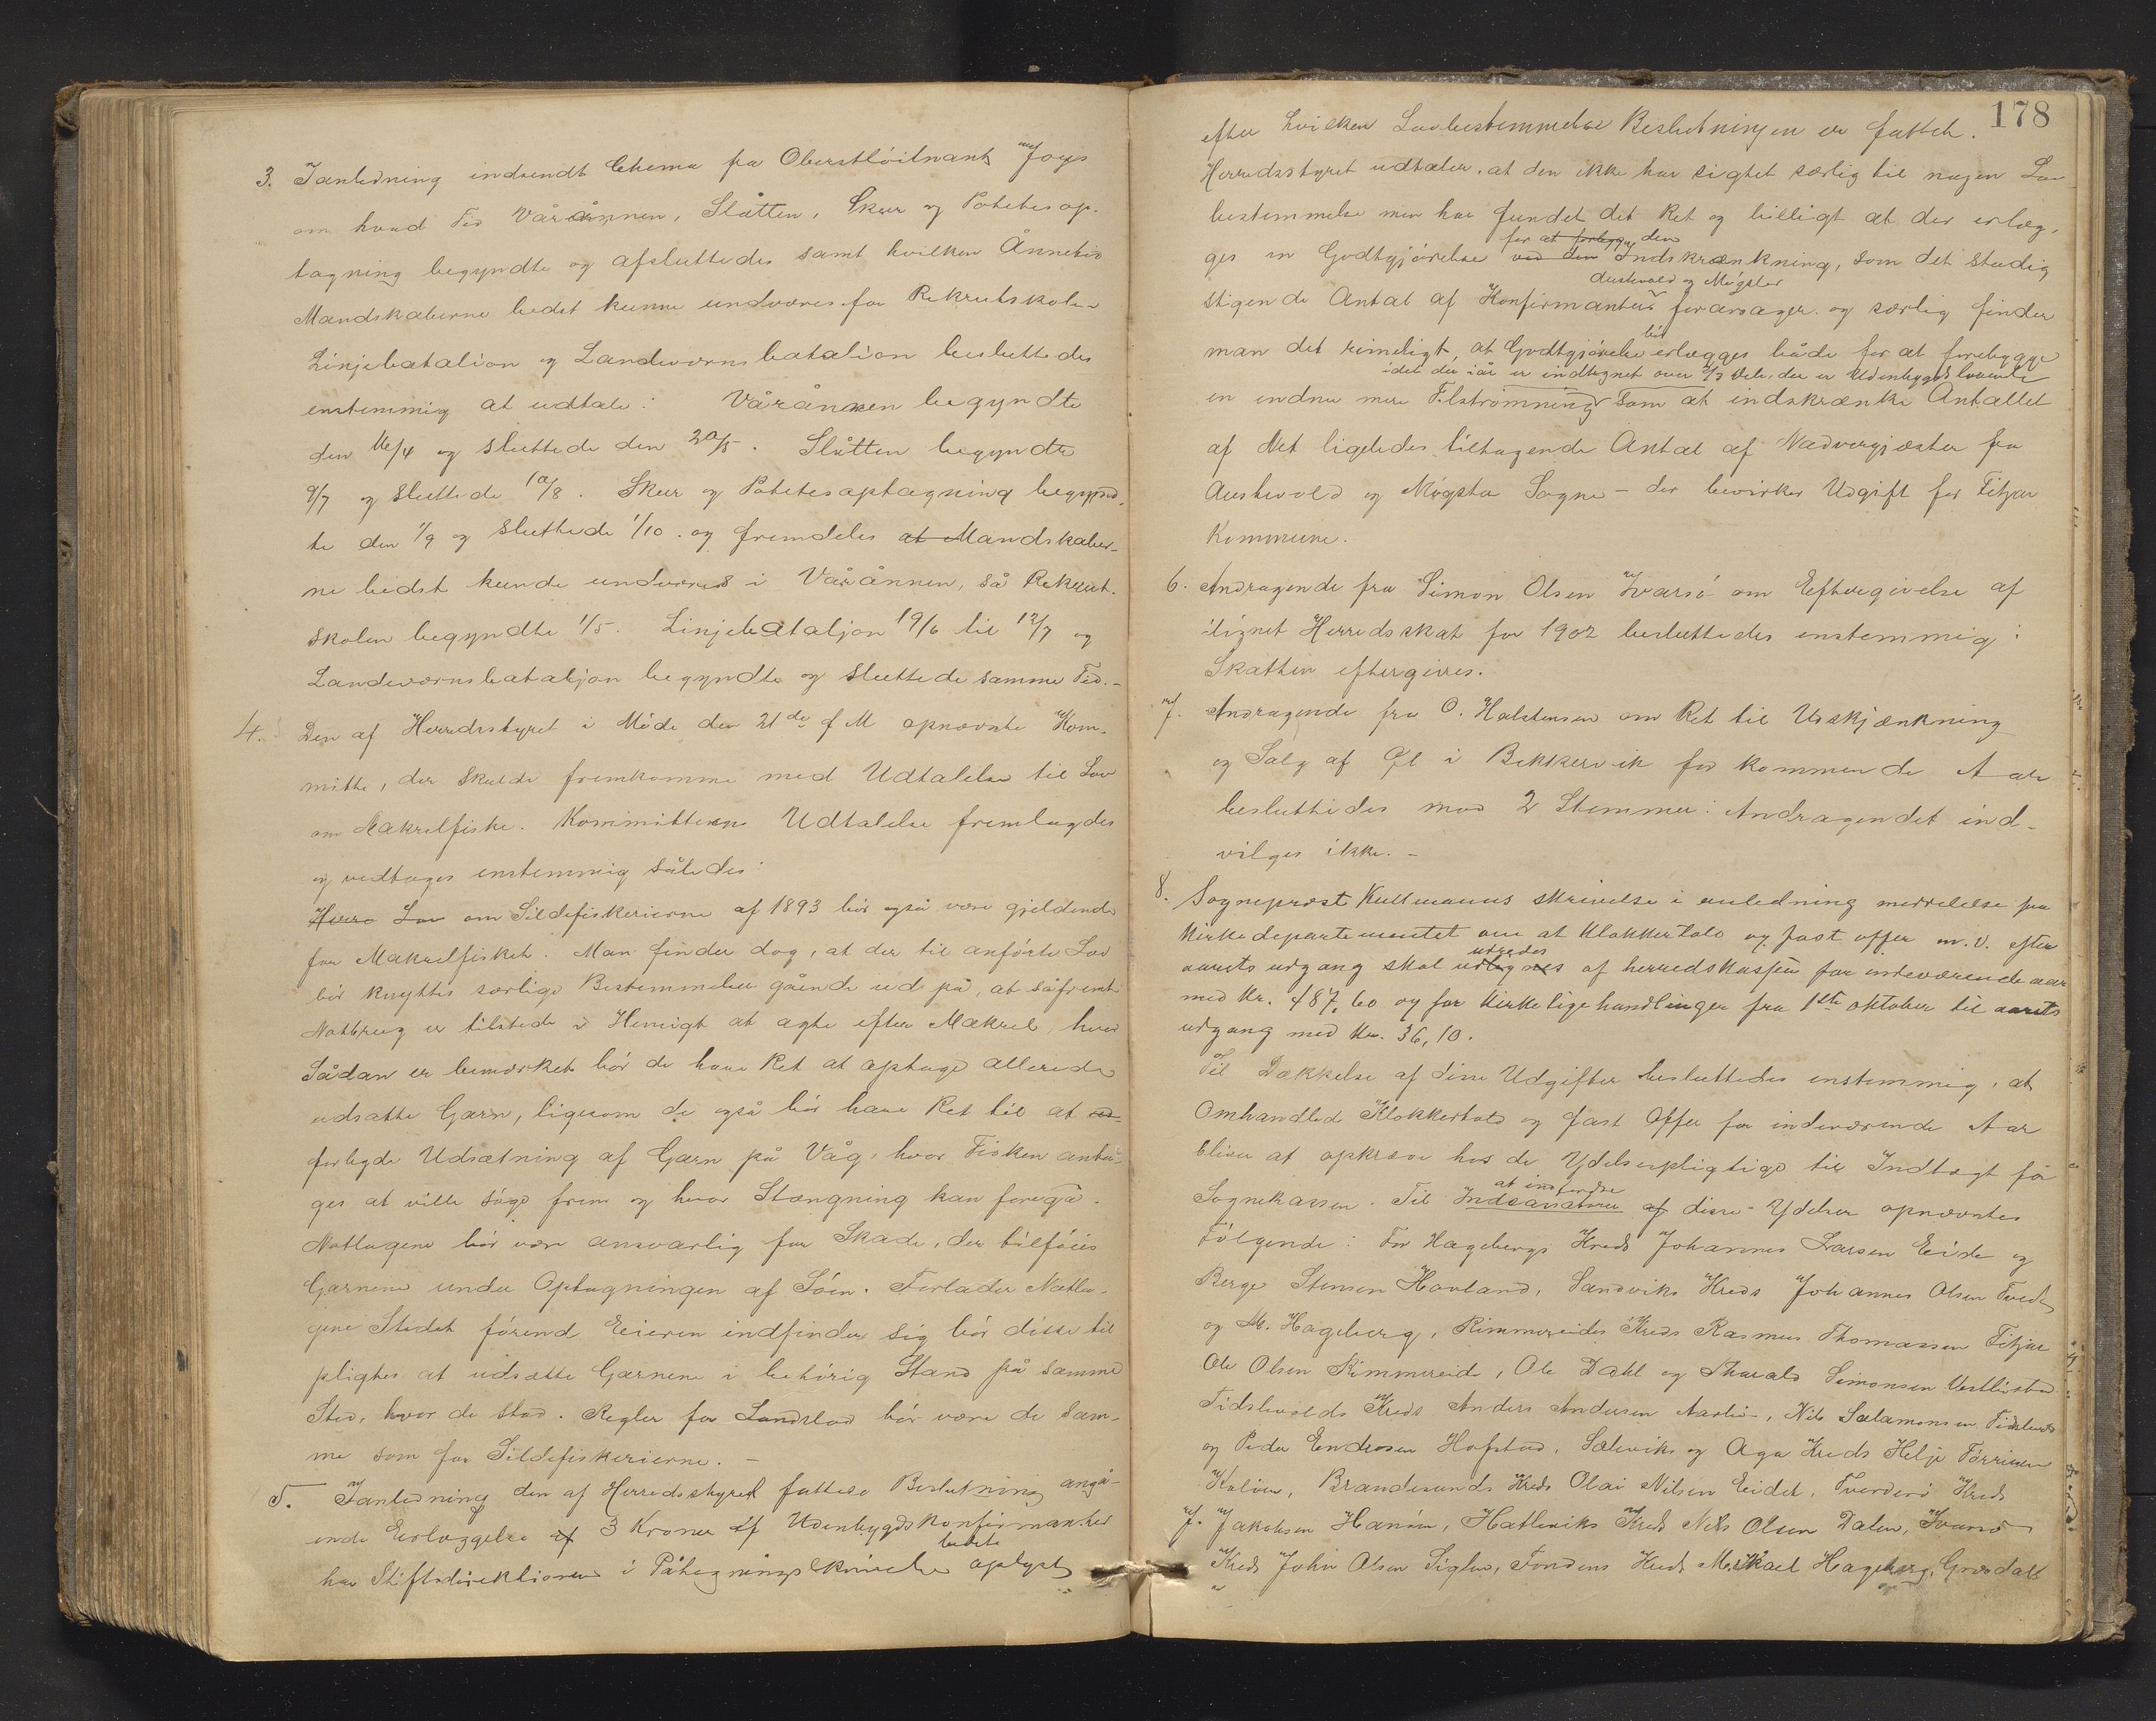 3. Ianledning indsendt Skema fra Oberstløitnant Joys
om hvad Tid Vårånnen, Slåtten, Skur og Potetesop-
tagning begyndte og afsluttedes samt hvilken Ånnetid
Mandskaberne bedst kunne undværes for Rekrutskolen
Linjebatalion og Landeværnsbatalion besluttedes
enstemmig at udtale: Vårånnen begyndte
den 16/4 og sluttede den 20/5. Slåtten begyndte
9/7 og sluttede 10/8. Skur og Potetesoptagning begynd-
te den 1/9 og sluttede 1/10. og fremdeles at Mandskaber-
ne bedst kunde undværes i Vårånnen, så Rekrut-
skolen begyndte 1/5. Linjebataljon 19/6 til 12/7 og
Landeværnsbataljon begyndte og sluttede samme Tid.-
4. Den af Herredsstyret i Møde den 21de f M opnævnte Kom-
mitte, der skulde fremkomme med Udtalelse til Lov
om Makrelfiske. Kommitteens Udtalelse fremlagdes
og vedtages enstemmig således:
Lov om Sildefiskerierne af 1893 bør også være gjeldende
for Makrelfisket. Man finder dog, at der til anførte Lov
bør knyttes særlige Bestemmelser gående ud på, at såfremt
Notbrug er tilstede i Hensigt at agte efter Makrel, hvor
Sådan er bemærket bør de have Ret at optage allerede
udsatte Garn, ligesom de også bør have Ret til at
forbyde Udsætning af Garn på Våg, hvor Fisken anta-
ges at ville søge frem og hvor Stængning kan foregå.
Notlagene bør være ansvarlig for Skade, der tilføies
Garnene under Optagningen af Søen. Forlader Notla-
gene Stedet førend Eieren indfinder sig bør disse til
pligtes at udsætte Garnene i behørig Stand på samme
Sted, hvor de stod. Regler for Landslod bør være de sam-
me som for Sildefiskerierne. -
5. Ianledning den af Herredsstyret fattede Beslutning angå-
ende Erlæggelse af 3 Kroner af Udenbygdskonfirmanter
har Stiftsdirektionen i Påtegningsskrivelse oplyst
178
efter hvilken Lovbestemmelse Beslutningen er fattet.
Herredsstyret udtaler, at den ikke har sigtet særlig til nogen Lov
bestemmelse men har fundet det Ret og billigt at der erlæg-
for at forebygge den
ges en Godtgjørelse ved den Indskrænkning, som det stadig
Austevold og Møgster
stigende Antal af Konfirmanter forarsager og særlig finder
man det rimeligt, at Godtgjørelse erlægges både for at forebygge
idet der iår er indtegnet over 2/3 Dele, der er Udenbygds
en endnu mere Tilstrømning som at indskrænke Antallet
af det ligeledes tiltagende Antal af Nadvergjæster fra
Austevold og Møgster Sogne - der bevirker Udgift for Fitjar
Kommune.
6. Andragende fra Simon Olsen Ivarsø om Eftergivelse af
ilignet Herredsskat for 1902 besluttedes enstemmig:
Skatten eftergives.
7. Andragende fra O. Halstensen om Ret til Udskjænkning
og Salg af Øl i Bekkervik for kommende Aar
besluttedes mod 2 Stemmer: Andragendet ind-
vilges ikke. -
8. Sogneprest Kullmanns skrivelse i anledning meddelelse fra
Kirkedepartementet om at Klokkertold og fast offer m.v. efter
udredes
aarets udgang skal udlignes af herredskassen for indeværende aar
med kr. 487,60 og for kirkelige handlinger fra 1ste oktober til aarets
udgang med kr. 36,10.
Til Dækkelse af disse Udgifter besluttedes enstemmig, at
Omhandled Klokkertold og fast Offer for indeværende Aar
bliver at opkræve hos de Ydelsespligtige til Indtægt for
at indfordre
Sognekassen. Til af disse Ydelser opnævntes
Følgende: For Hagebergs Kreds Johannes Larsen Eide og
Berge Stensen Havland, Sandviks Kreds Johannes Olsen Tveda
og M. Hageberg, Rimmereides Kreds Rasmus Thomassen Fitjar
Ole Olsen Rimmereide, Ole Dahl og Tharald Simonsen Vestbøstad
Tidslevolds Kreds Anders Andersen Aarbø, Nils Salamonsen Tidslevold
og Peder Endresen Hofstad, Sæleviks og Aga Kreds Helje Tørrisen
Kaløen, Brandesunds Kreds Olai Nilsen Eidet, Tverderø Kreds
J. Jakobsen Hanøen, Hatleviks Kreds Nils Olsen Dalen, Ivarsø
Kreds John Olsen Siglen, Fondens Kreds Mikael Hageberg, Grøsdals